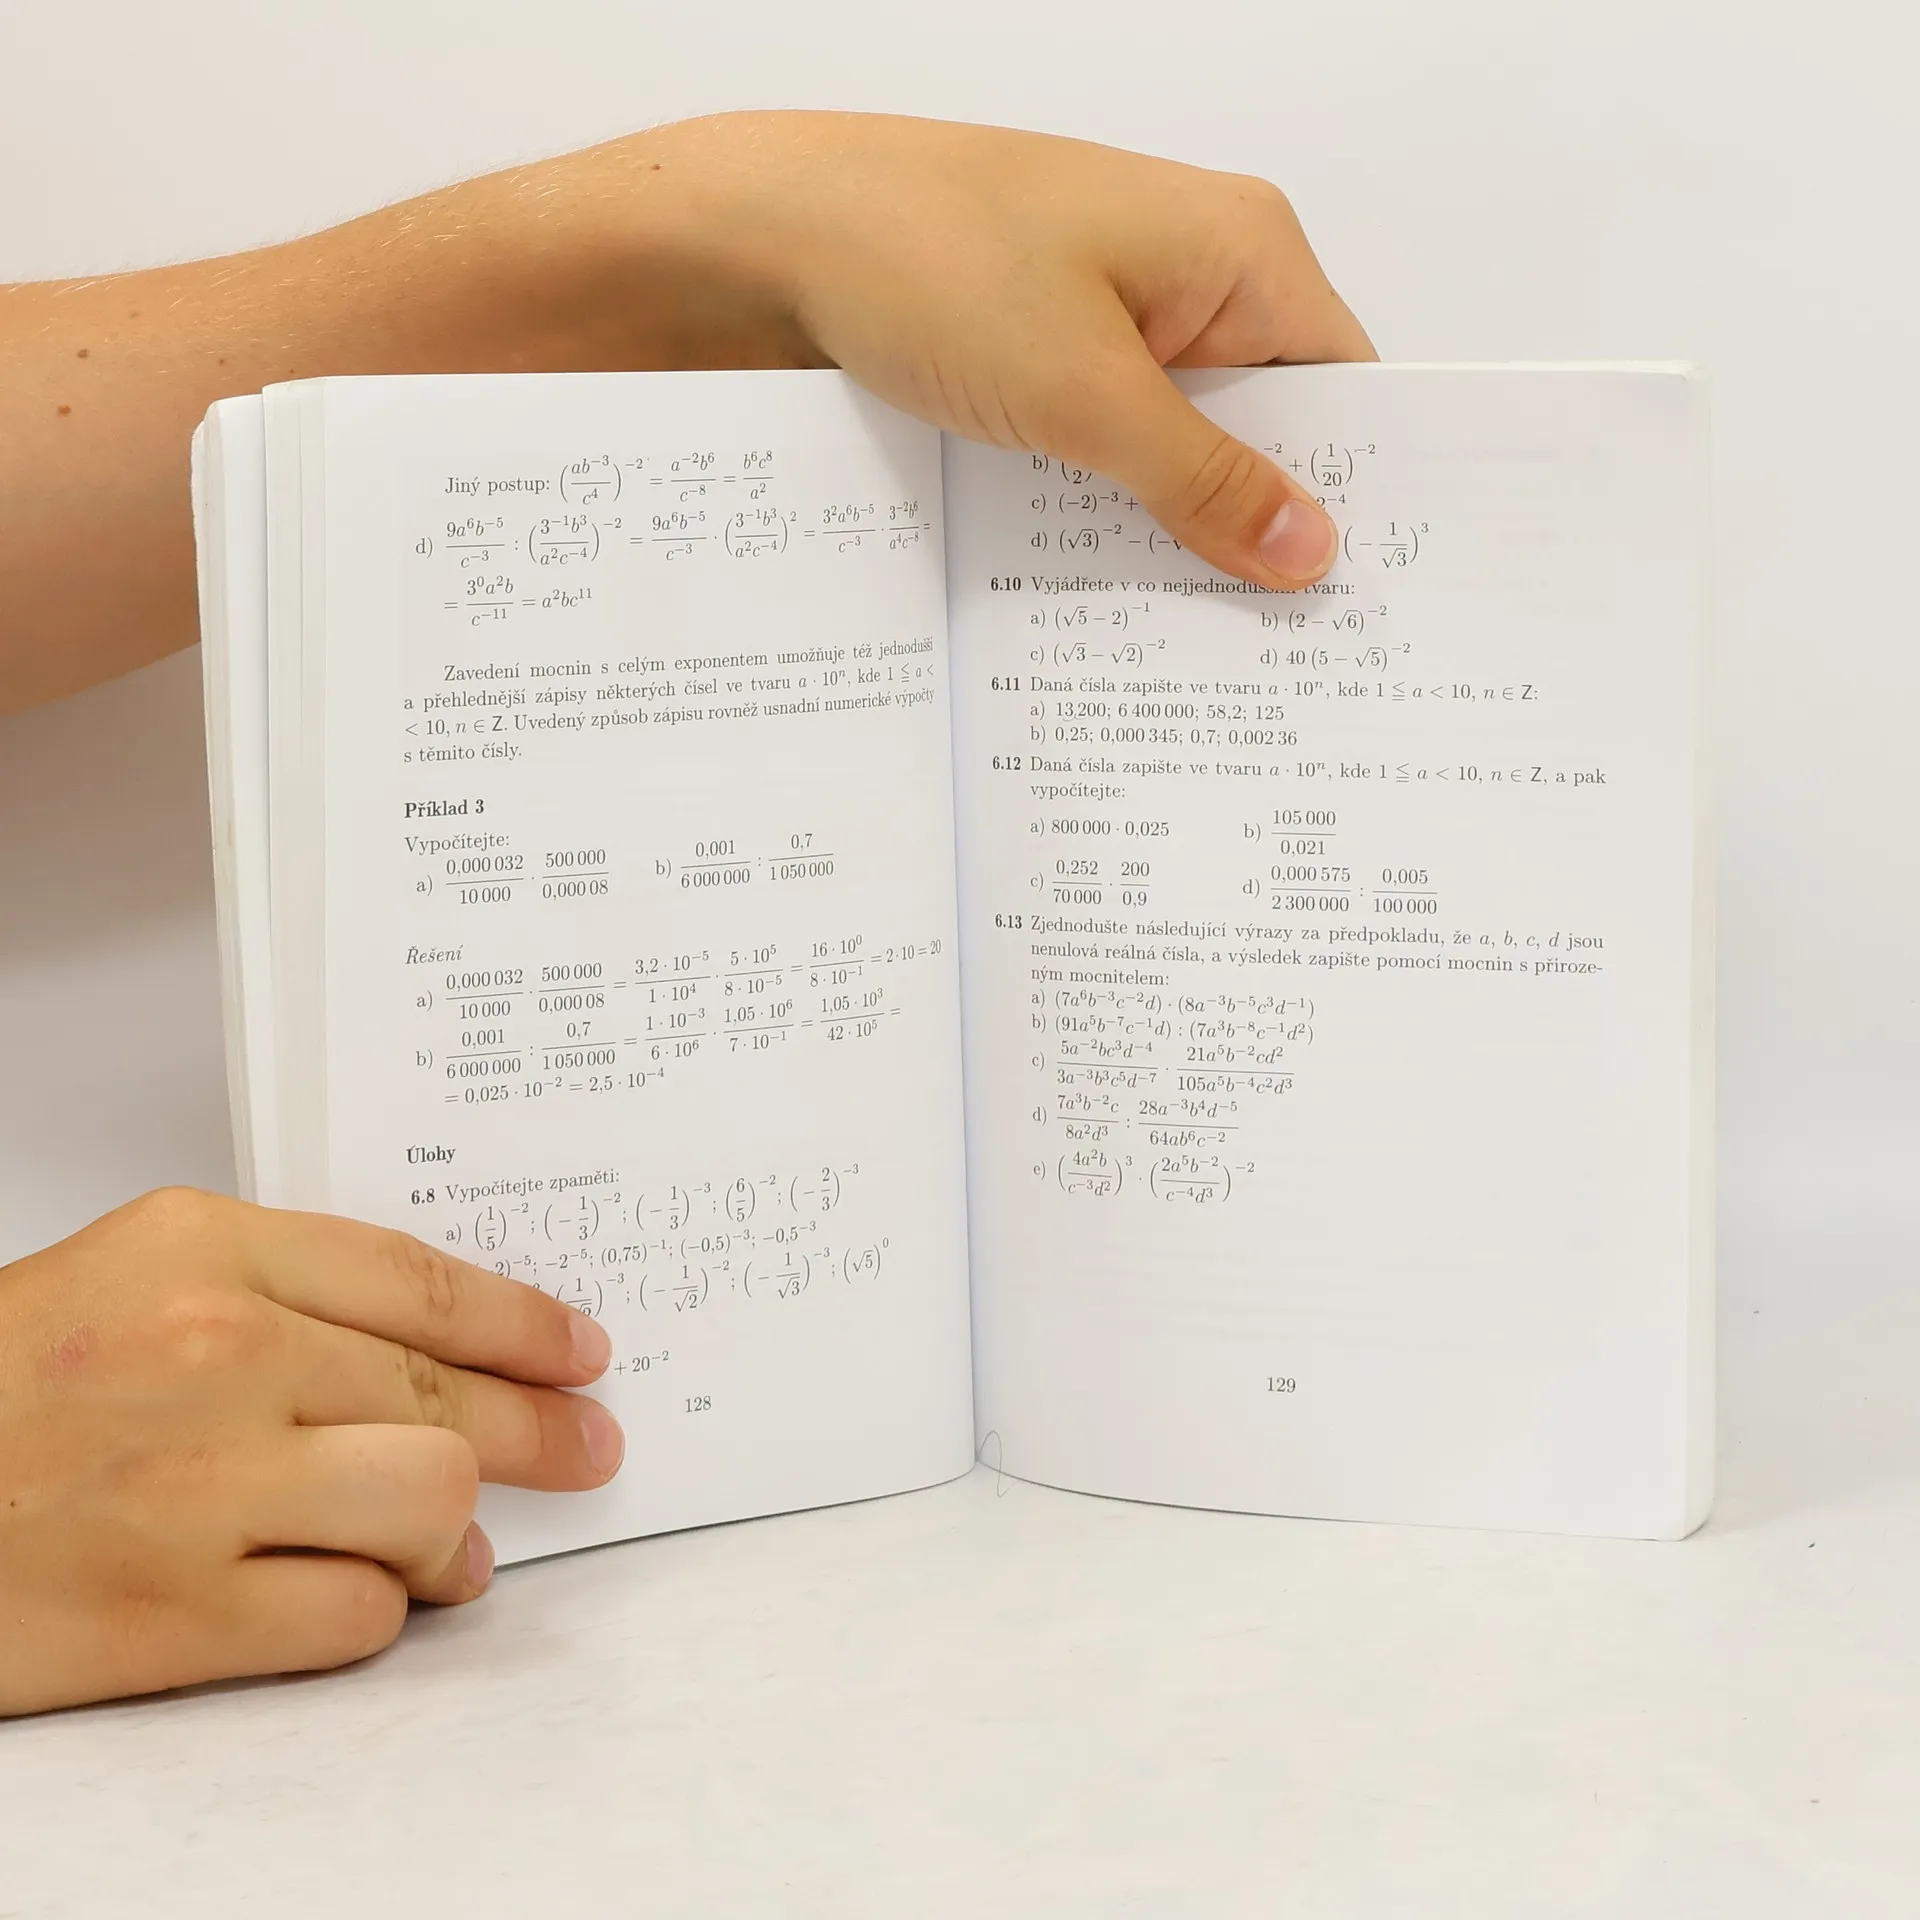 Jiný postup: (ab⁻³/c⁴)⁻² = a⁻²b⁶/c⁻⁸ = b⁶c⁸/a²
d) 9a⁶b⁻⁵/c⁻³ : (3⁻¹b³/a²c⁻⁴)⁻² = 9a⁶b⁻⁵/c⁻³ · (3⁻¹b³/a²c⁻⁴)² = 3²a⁶b⁻⁵/c⁻³ · 3⁻²b⁶/a⁴c⁻⁸ =
= 3⁰a²b/c⁻¹¹ = a²bc¹¹
Zavedení mocnin s celým exponentem umožňuje též jednodušší
a přehlednější zápisy některých čísel ve tvaru a · 10ⁿ, kde 1 ≦ a <
< 10, n ∈ Z. Uvedený způsob zápisu rovněž usnadní numerické výpočty
s těmito čísly.
Příklad 3
Vypočítejte:
a) 0,000 032/10 000 · 500 000/0,000 08 b) 0,001/6 000 000 : 0,7/1 050 000
Řešení
a) 0,000 032/10 000 · 500 000/0,000 08 = 3,2 · 10⁻⁵/1 · 10⁴ · 5 · 10⁵/8 · 10⁻⁵ = 16 · 10⁰/8 · 10⁻¹ = 2 · 10 = 20
b) 0,001/6 000 000 : 0,7/1 050 000 = 1 · 10⁻³/6 · 10⁶ · 1,05 · 10⁶/7 · 10⁻¹ = 1,05 · 10³/42 · 10⁵ =
= 0,025 · 10⁻² = 2,5 · 10⁻⁴
Úlohy
6.8 Vypočítejte zpaměti:
a) (1/5)⁻²; (−1/3)⁻²; (−1/3)⁻³; (6/5)⁻²; (−2/3)⁻³
2)⁻⁵; −2⁻⁵; (0,75)⁻¹; (−0,5)⁻³; −0,5⁻³
⁻³; (−1/√2)⁻²; (−1/√3)⁻³; (√5)⁰
+ 20⁻²
128
b) ⁻² + (1/20)⁻²
c) (−2)⁻³ +
d) (√3)⁻² − (− (−1/√3)³
6.10 Vyjádřete v co tvaru:
a) (√5 − 2)⁻¹ b) (2 − √6)⁻²
c) (√3 − √2)⁻² d) 40 (5 − √5)⁻²
6.11 Daná čísla zapište ve tvaru a · 10ⁿ, kde 1 ≦ a < 10, n ∈ Z:
a) 13,200; 6 400 000; 58,2; 125
b) 0,25; 0,000 345; 0,7; 0,002 36
6.12 Daná čísla zapište ve tvaru a · 10ⁿ, kde 1 ≦ a < 10, n ∈ Z, a pak
vypočítejte:
a) 800 000 · 0,025 b) 105 000/0,021
c) 0,252/70 000 · 200/0,9 d) 0,000 575/2 300 000 : 0,005/100 000
6.13 Zjednodušte následující výrazy za předpokladu, že a, b, c, d jsou
nenulová reálná čísla, a výsledek zapište pomocí mocnin s přiroze-
ným mocnitelem:
a) (7a⁶b⁻³c⁻²d) · (8a⁻³b⁻⁵c³d⁻¹)
b) (91a⁵b⁻⁷c⁻¹d) : (7a³b⁻⁸c⁻¹d²)
c) 5a⁻²bc³d⁻⁴/3a⁻³b³c⁵d⁻⁷ · 21a⁵b⁻²cd²/105a⁵b⁻⁴c²d³
d) 7a³b⁻²c/8a²d³ : 28a⁻³b⁴d⁻⁵/64ab⁶c⁻²
e) (4a²b/c⁻³d²)³ · (2a⁵b⁻²/c⁻⁴d³)⁻²
129